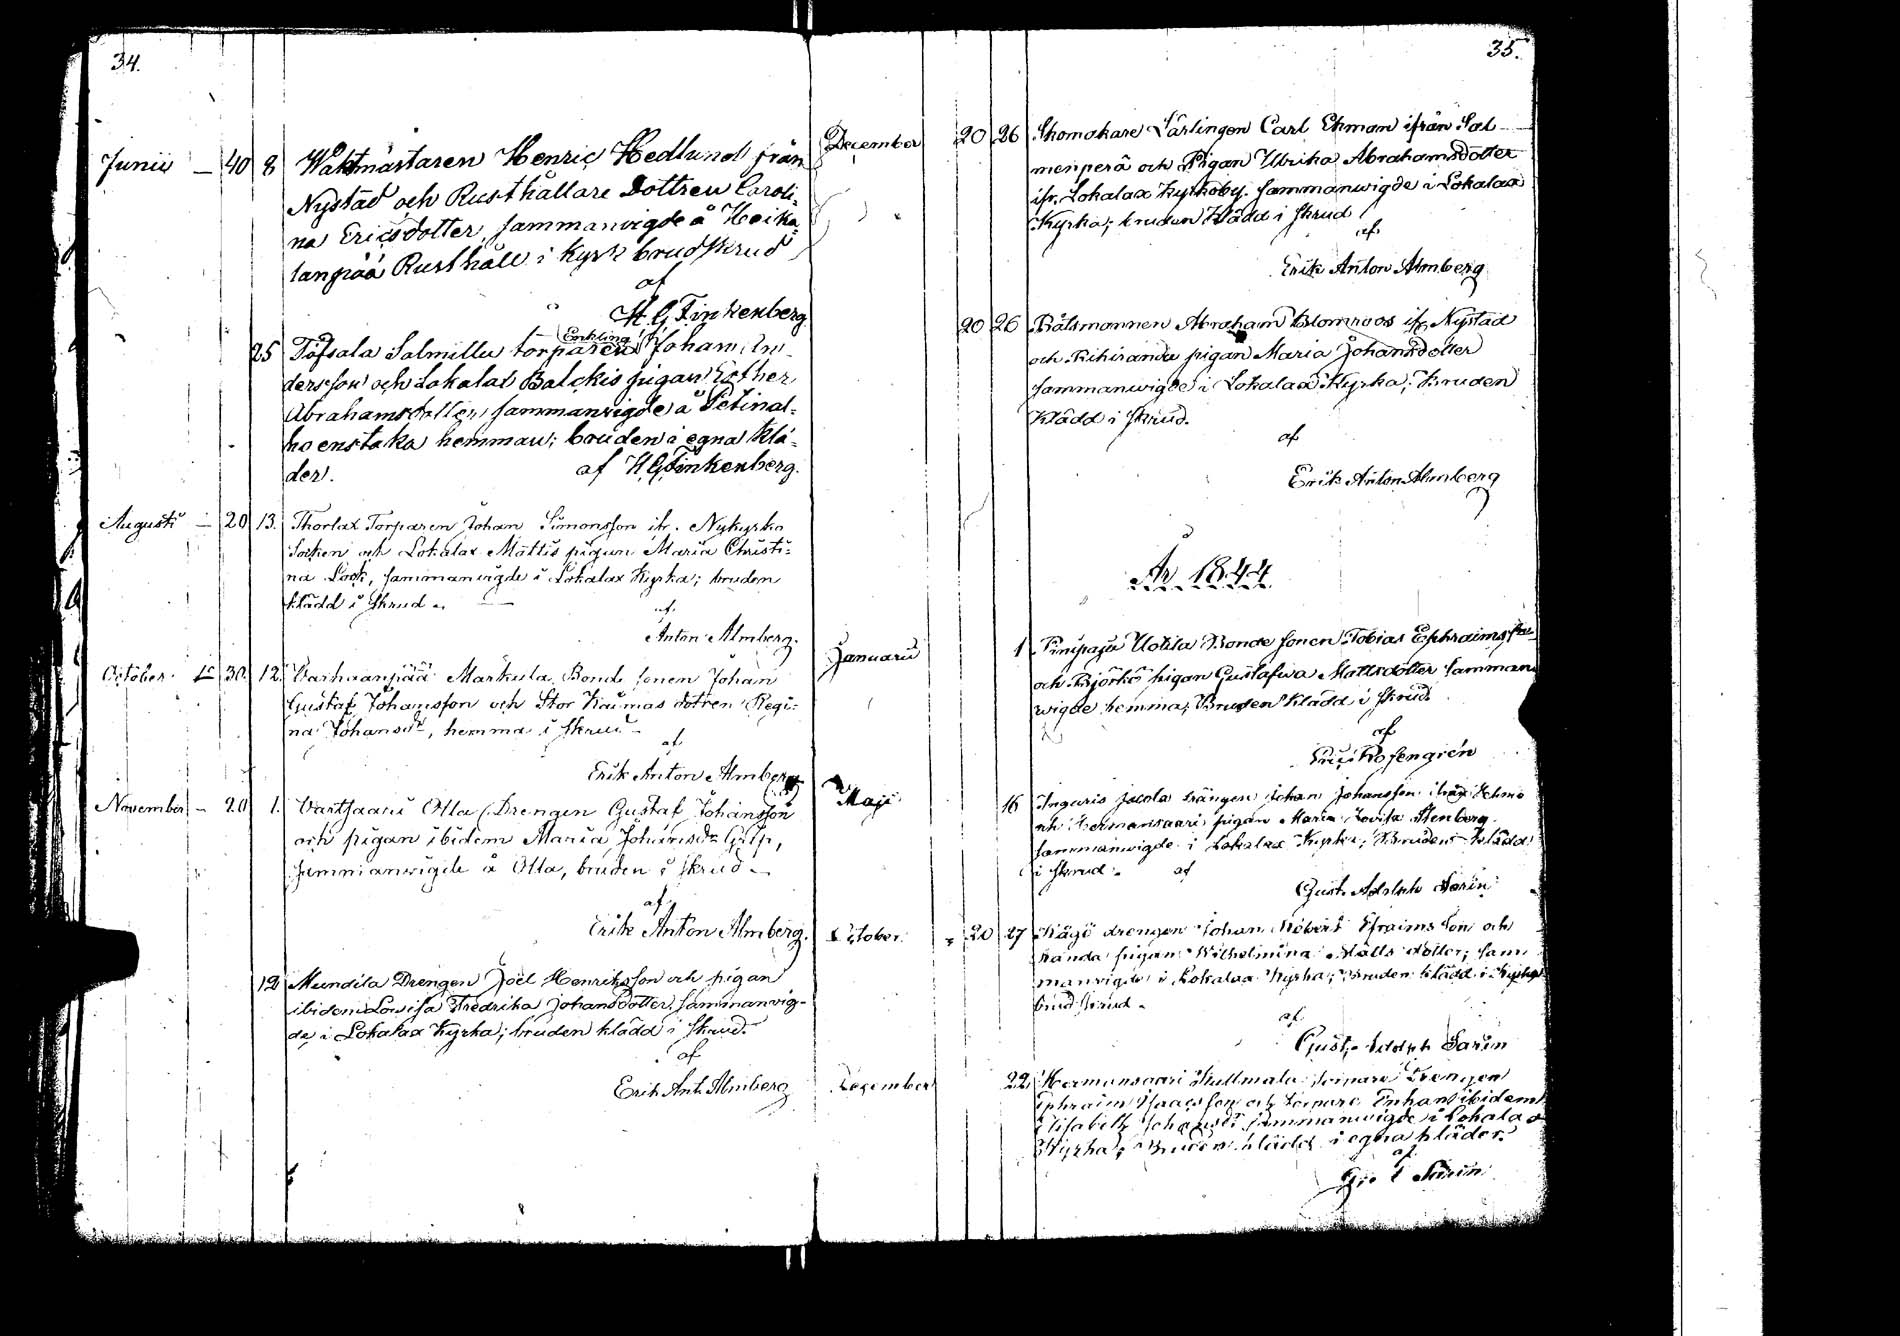 34.
Junii — 40 8 Waktmästaren Henric Hedlund från
Nystad och Rusthållare Dottren Caroli-
na Ericsdotter, sammanvigde å Heika-
lanpää Rusthåll i Kyrk brudskrud
af
H. G. Finkenberg
Enkling
25 Töfsala Salmillu torparen Johan An-
dersson och Lokalax Balckis pigan Esther
Abrahamsdotter, sammanvigde å Petinal-
ho enstaka hemman; bruden i egna klä-
der.
af H. G. Finkenberg.
Augusti — 20 13. Thorlax Torparen Johan Simonsson ifr. Nykyrko
Socken och Lokalax Mattis pigan Maria Christi-
na Look, sammanvigde i Lokalax Kyrka; bruden
klädd i skrud.
af
Anton Almberg.
October. 30. 12. Varhaanpää Markula Bonde sonen Johan
Gustaf Johansson och Stor Kaumas dotren Regi-
na Johansdr, hemma i skrud
af
Erik Anton Almberg
November — 20 1. Vartsaari Olla Drengen Gustaf Johansson
och pigan ibidem Maria Johansdr
sammanvigde å Olla, bruden i skrud
af
Erik Anton Almberg.
12 Mundila Drengen Joël Henriksson och pigan
ibidem Lovisa Fredrika Johansdotter, sammanvig-
de i Lokalax Kyrka; bruden klädd i skrud.
af
Erik Ant. Almberg
35.
December 20 26 Skomakare Lärlingen Carl Ekman ifrån Sal-
menperä och Pigan Ulrika Abrahamsdotter
ifr. Lokalax Kyrkoby. sammanvigde i Lokalax
Kyrka; bruden klädd i skrud
af
Erik Anton Almberg
20 26 Båtsmannen Abraham Blomroos ifr Nystad
och Rihiranda pigan Maria Johansdotter
sammanwigde i Lokalax Kyrka; Bruden
klädd i skrud.
af
Erik Anton Almberg
År 1844
Januarii 1 Pinipaju Uotila Bonde sonen Tobias Ephraims son
och Björkö pigan Gustafva Mattsdotter samman
wigde hemma; Bruden klädd i skrud.
af
Rosengrén
Maji 16 Inguris Jacola drängen Johan Johansson
och Hermansaari pigan Maria Lovisa Stenberg
sammanwigde i Lokalax Kyrka; Bruden klädd
i skrud. af
Gust. Adolph Sarin
October 20 27 Kägö drengen Johan Robert Efraims son och
Randa pigan Wilhelmina Matts dotter; sam
manvigde i Lokalax Kyrka; Bruden klädd i Kyrko
brud skrud.
af
Gust. Adolph Sarin
December 22 Hermansaari Kullmala torpare Drengen
Ephraim Isaacsson och torpare Enkan ibidem
Elisabeth Johansdr sammanwigde i Lokalax
Kyrka; Bruden klädd i egna kläder.
af
Sarin